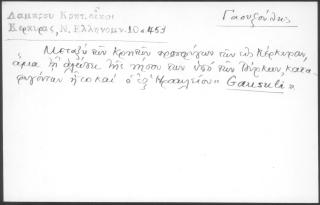 Λαμπρου Κρητ. οἶκοι
Γαουζούλης
Κερκυρας, Ν. Ελληνομν. 10 σ 453
Μεταξὺ τῶν Κρητῶν προσφύγων τῶν εἰς Κέρκυραν,
ἅμα τῇ ἁλώσει τῆς νήσου των ὑπὸ τῶν Τούρκων, κατα
φυγόντων ἦτο καὶ ὁ ἐξ Ηρακλείου « Gausuli »